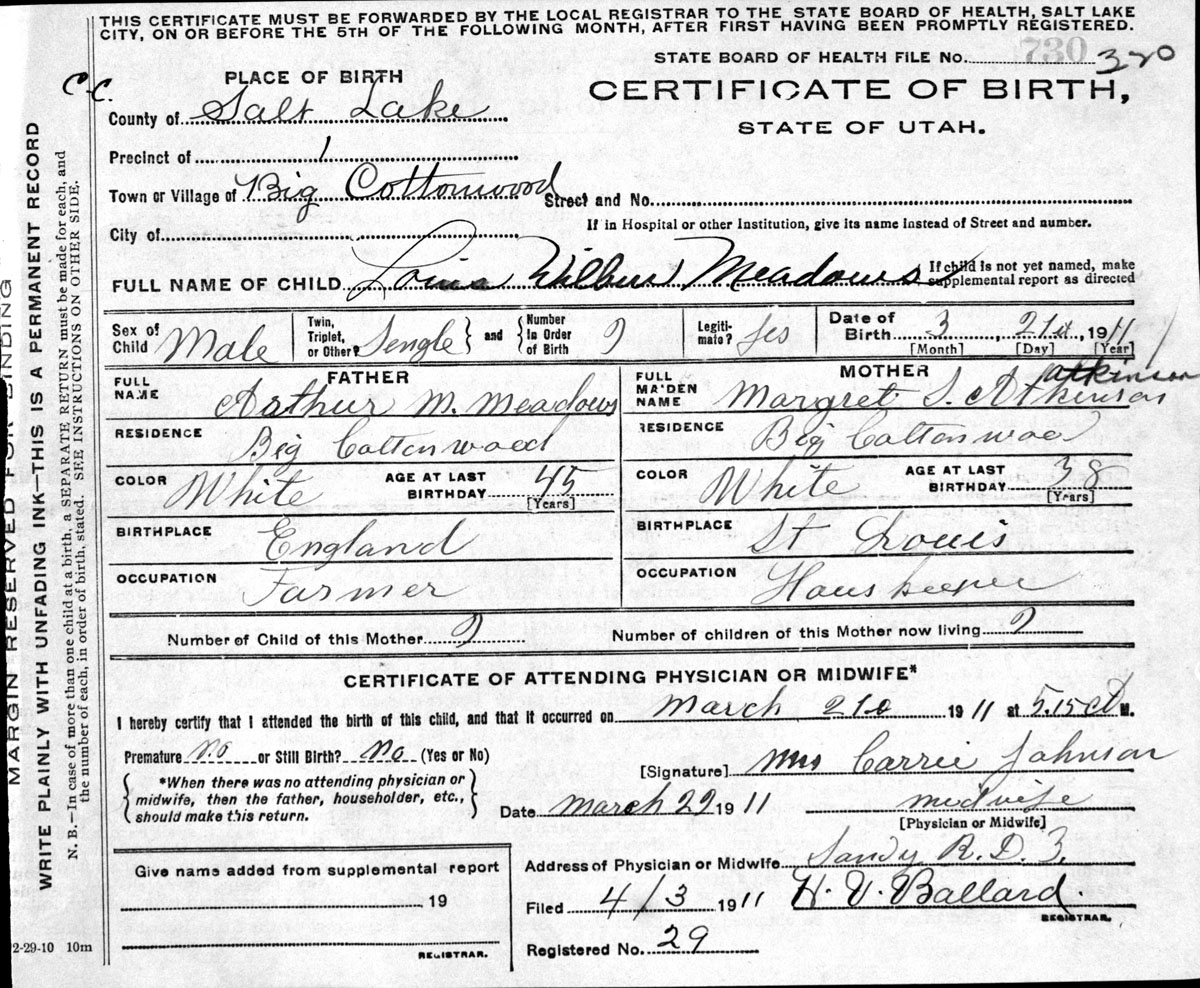 THIS CERTIFICATE MUST BE FORWARDED BY THE LOCAL REGISTRAR TO THE STATE BOARD OF HEALTH, SALT LAKE
CITY, ON OR BEFORE THE 5TH OF THE FOLLOWING MONTH, AFTER FIRST HAVING BEEN PROMPTLY REGISTERED.
STATE BOARD OF HEALTH FILE No. 730 320
C.C.
PLACE OF BIRTH
CERTIFICATE OF BIRTH,
STATE OF UTAH.
County of Salt Lake
Precinct of 1
Town or Village of Big Cottonwood Street and No.
If in Hospital or other Institution, give its name instead of Street and number.
City of
FULL NAME OF CHILD Louis Wilbur Meadows
If child is not yet named, make
supplemental report as directed
Sex of Child Male
Twin, Triplet, or Other? Sengle and Number In Order of Birth 9
Legitimate? Yes
Date of Birth 3 21st, 1911
[Month] [Day] [Year]
FATHER
FULL NAME Arthur M. Meadows
RESIDENCE Big Cottonwood
COLOR White AGE AT LAST BIRTHDAY 45 [Years]
BIRTHPLACE England
OCCUPATION Farmer
MOTHER
FULL MAIDEN NAME Margret S. Atkinson
atkinson
RESIDENCE Big Cottonwood
COLOR White AGE AT LAST BIRTHDAY 38 [Years]
BIRTHPLACE St Louis
OCCUPATION Hous keeper
Number of Child of this Mother 9 Number of children of this Mother now living 9
CERTIFICATE OF ATTENDING PHYSICIAN OR MIDWIFE*
I hereby certify that I attended the birth of this child, and that it occurred on March 21 1911 at 5.15 a M.
Premature no or Still Birth? No (Yes or No)
*When there was no attending physician or
midwife, then the father, householder, etc.,
should make this return.
[Signature] Mrs Carrie Johnson
Date March 22 1911 midwife
[Physician or Midwife]
Address of Physician or Midwife Sandy R. D. 3.
Give name added from supplemental report
19
REGISTRAR.
Filed 4/3 1911 H. V. Ballard.
REGISTRAR.
Registered No. 29
2-29-10 10m
MARGIN RESERVED FOR BINDING
WRITE PLAINLY WITH UNFADING INK—THIS IS A PERMANENT RECORD
N. B.—In case of more than one child at a birth, a SEPARATE RETURN must be made for each, and
the number of each, in order of birth, stated. SEE INSTRUCTIONS ON OTHER SIDE.